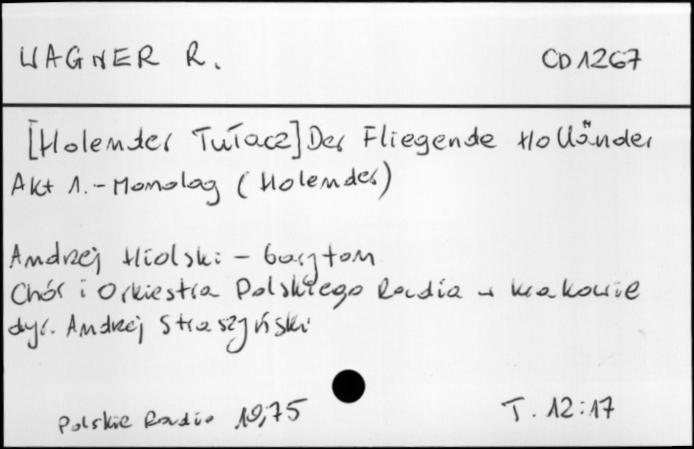 WAGNER R. CD 1267
[Holender Tułacz] Der Fliegende Holländer
Akt 1. - Monolog (Holender)
Andrzej Hiolski - baryton
Chór i Orkiestra Polskiego Radia w Krakowie
dyr. Andrzej Straszyński
Polskie Radio 19,75 T. 12:17